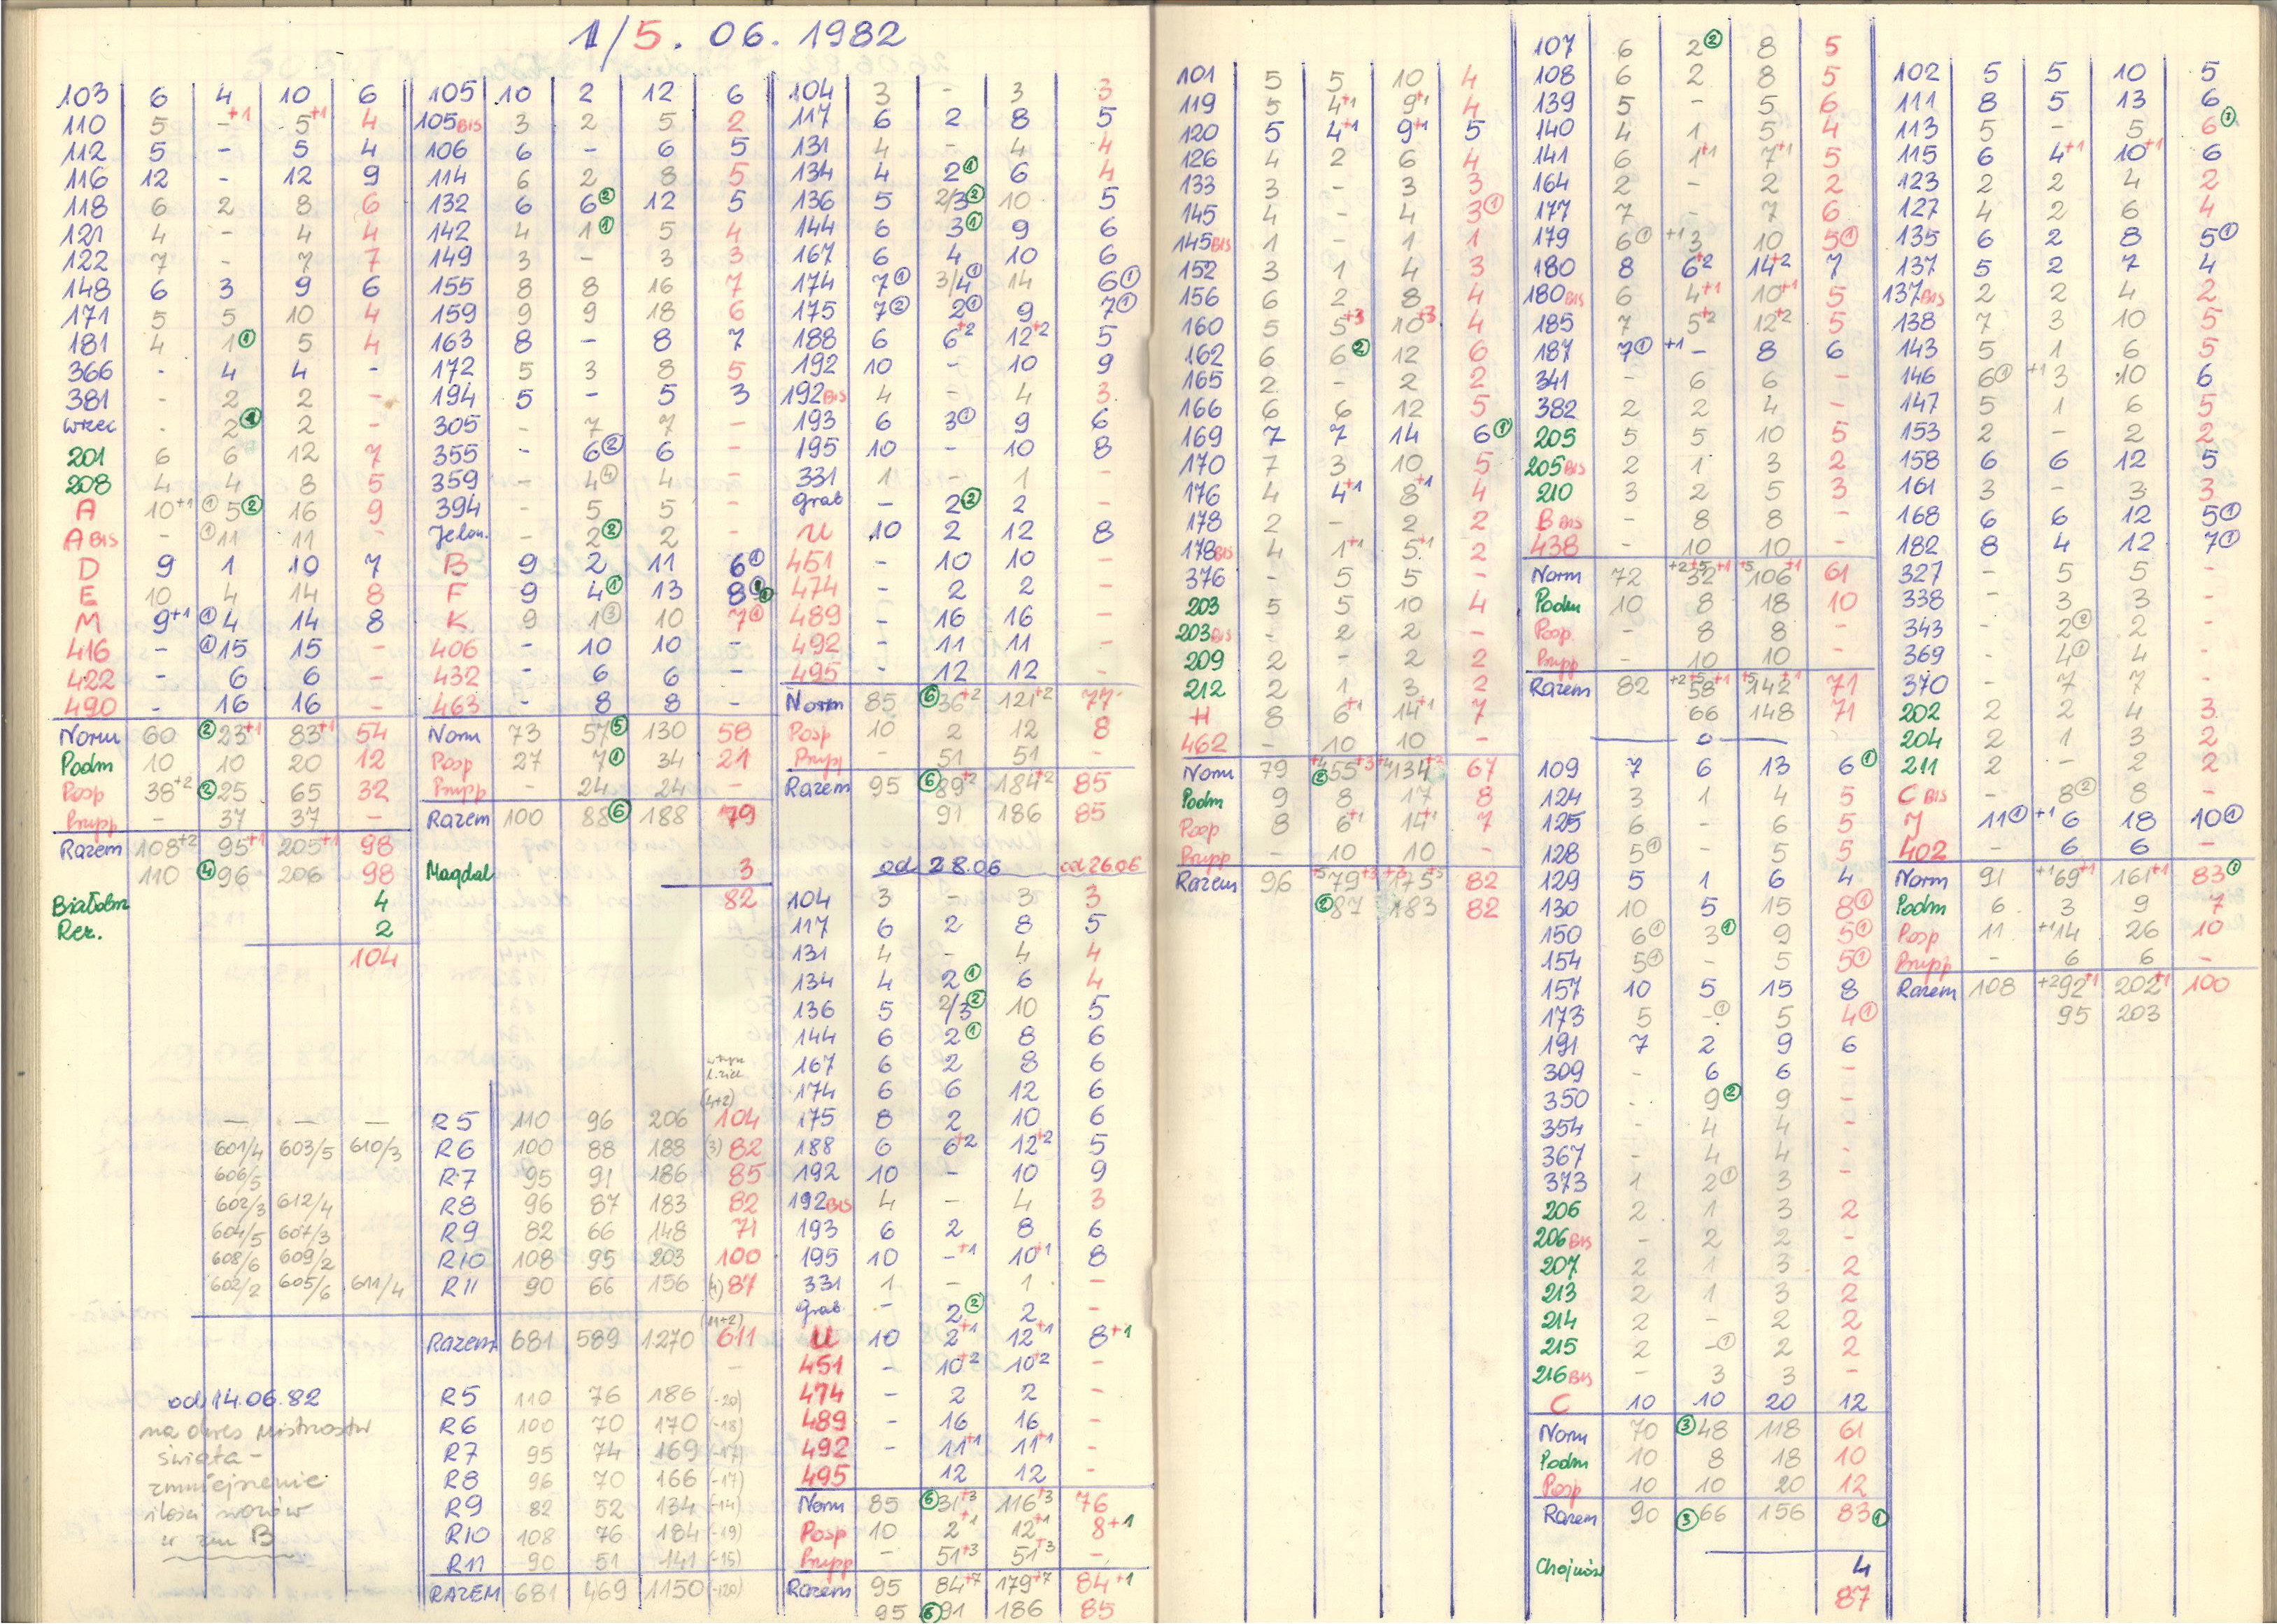 1/5. 06. 1982
103 6 4 10 6
110 5 -+1 5+1 4
112 5 - 5 4
116 12 - 12 9
118 6 2 8 6
121 4 - 4 4
122 7 - 7 7
148 6 3 9 6
171 5 5 10 4
181 4 1① 5 4
366 - 4 4 -
381 - 2 2 -
wrzec - 2 2 -
201 6 6 12 7
208 4 4 8 5
A 10+1 ①5② 16 9
A BIS - ①11 11 -
D 9 1 10 7
E 10 4 14 8
M 9+1 ①4 14 8
416 - ①15 15 -
422 - 6 6 -
490 - 16 16 -
Norm 60 ②23+1 83+1 54
Podm 10 10 20 12
Posp 38+2 ②25 65 32
Prupp - 37 37 -
Razem 108+2 95+1 205+1 98
110 ④96 206 98
Białobrz 4
Rez. 2
104
105 10 2 12 6
105BIS 3 2 5 2
106 6 - 6 5
114 6 2 8 5
132 6 6② 12 5
142 4 1① 5 4
149 3 - 3 3
155 8 8 16 7
159 9 9 18 6
163 8 - 8 7
172 5 3 8 5
194 5 - 5 3
305 - 7 7 -
355 - 6② 6 -
359 - 4④ 4 -
394 - 5 5 -
Jelon. - 2② 2 -
B 9 2 11 6①
F 9 4① 13 8
K 9 1③ 10 7①
406 - 10 10 -
432 - 6 6 -
463 - 8 8 -
Norm 73 57⑤ 130 58
Posp 27 7① 34 21
Prupp - 24 24 -
Razem 100 88⑥ 188 79
Magdal 3
82
104 3 - 3 3
117 6 2 8 5
131 4 - 4 4
134 4 2① 6 4
136 5 2/3② 10 5
144 6 3① 9 6
167 6 4 10 6
174 7① 3/4① 14 6①
175 7② 2① 9 7①
188 6 6+2 12+2 5
192 10 - 10 9
192BIS 4 - 4 3
193 6 3① 9 6
195 10 - 10 8
331 1 - 1 -
Grab - 2② 2 -
U 10 2 12 8
451 - 10 10 -
474 - 2 2 -
489 - 16 16 -
492 - 11 11 -
495 - 12 12 -
Norm 85 ⑥36+2 121+2 77
Posp 10 2 12 8
Prupp - 51 51 -
Razem 95 ⑥89+2 184+2 85
91 186 85
od 28.06 od 26.06
104 3 - 3 3
117 6 2 8 5
131 4 - 4 4
134 4 2① 6 4
136 5 2/3② 10 5
144 6 2① 8 6
167 6 2 8 6
174 6 6 12 6
175 8 2 10 6
188 6 6+2 12+2 5
192 10 - 10 9
192BIS 4 - 4 3
193 6 2 8 6
195 10 -+1 10+1 8
331 1 - 1 -
Grab - 2② 2 -
U 10 2+1 12+1 8+1
451 - 10+2 10+2 -
474 - 2 2 -
489 - 16 16 -
492 - 11+1 11+1 -
495 - 12 12 -
Norm 85 ⑥31+3 116+3 76
Posp 10 2+1 12+1 8+1
Prupp - 51+3 51+3 -
Razem 95 84+7 179+7 84+1
95 ⑥91 186 85
- - - R5 110 96 206 (4+2) 104
601/4 603/5 610/3 R6 100 88 188 (3) 82
606/5 R7 95 91 186 85
602/3 612/4 R8 96 87 183 82
604/5 607/3 R9 82 66 148 71
608/6 609/2 R10 108 95 203 100
602/2 605/6 611/4 R11 90 66 156 (4) 87
Razem 681 589 1270 (11+2) 611
od 14.06.82
na okres mistrzostw
świata -
zmniejszenie
ilości wozów
w zm B
R5 110 76 186 (-20)
R6 100 70 170 (-18)
R7 95 74 169 (-17)
R8 96 70 166 (-17)
R9 82 52 134 (-14)
R10 108 76 184 (-19)
R11 90 51 141 (-15)
RAZEM 681 469 1150 (-120)
101 5 5 10 4
119 5 4+1 9+1 4
120 5 4+1 9+1 5
126 4 2 6 4
133 3 - 3 3
145 4 - 4 3①
145BIS 1 - 1 1
152 3 1 4 3
156 6 2 8 4
160 5 5+3 10+3 4
162 6 6② 12 6
165 2 - 2 2
166 6 6 12 5
169 7 7 14 6①
170 7 3 10 5
176 4 4+1 8+1 4
178 2 - 2 2
178BIS 4 1+1 5+1 2
376 - 5 5 -
203 5 5 10 4
203BIS - 2 2 -
209 2 - 2 2
212 2 1 3 2
H 8 6+1 14+1 7
462 - 10 10 -
Norm 79 +4 ②55+3 +4 134+3 67
Podm 9 8 17 8
Posp 8 6+1 14+1 7
Prupp - 10 10 -
Razem 96 +5 79+3 175 82
②87 183 82
107 6 2② 8 5
108 6 2 8 5
139 5 - 5 6
140 4 1 5 4
141 6 1+1 7+1 5
164 2 - 2 2
177 7 - 7 6
179 6① +1 3 10 5①
180 8 6+2 14+2 7
180BIS 6 4+1 10+1 5
185 7 5+2 12+2 5
187 7① +1 - 8 6
341 - 6 6 -
382 2 2 4 -
205 5 5 10 5
205BIS 2 1 3 2
210 3 2 5 3
B BIS - 8 8 -
438 - 10 10 -
Norm 72 +2 32+5+1 +5 106+1 61
Podm 10 8 18 10
Posp - 8 8 -
Prupp - 10 10 -
Razem 82 +2 58+5+1 +5 142+1 71
66 148 71
109 7 6 13 6①
124 3 1 4 5
125 6 - 6 5
128 5① - 5 5
129 5 1 6 4
130 10 5 15 8①
150 6① 3① 9 5①
154 5① - 5 5①
157 10 5 15 8
173 5 -① 5 4①
191 7 2 9 6
309 - 6 6 -
350 - 9② 9 -
354 - 4 4 -
367 - 4 4 -
373 1 2① 3 -
206 2 1 3 2
206BIS - 2 2 -
207 2 1 3 2
213 2 1 3 2
214 2 - 2 2
215 2 -① 2 2
216BIS - 3 3 -
C 10 10 20 12
Norm 70 ③48 118 61
Podm 10 8 18 10
Posp 10 10 20 12
Razem 90 ③66 156 83①
Chojnów 4
87
102 5 5 10 5
111 8 5 13 6
113 5 - 5 6①
115 6 4+1 10+1 6
123 2 2 4 2
127 4 2 6 4
135 6 2 8 5①
137 5 2 7 4
137BIS 2 2 4 2
138 7 3 10 5
143 5 1 6 5
146 6① +1 3 10 6
147 5 1 6 5
153 2 - 2 2
158 6 6 12 5
161 3 - 3 3
168 6 6 12 5①
182 8 4 12 7①
327 - 5 5 -
338 - 3 3 -
343 - 2② 2 -
369 - 4① 4 -
370 - 7 7 -
202 2 2 4 3
204 2 1 3 2
211 2 - 2 2
C BIS - 8② 8 -
J 11① +1 6 18 10①
402 - 6 6 -
Norm 91 +1 69+1 161+1 83①
Podm 6 3 9 7
Posp 11 +1 14 26 10
Prupp - 6 6 -
Razem 108 +2 92+1 202+1 100
95 203